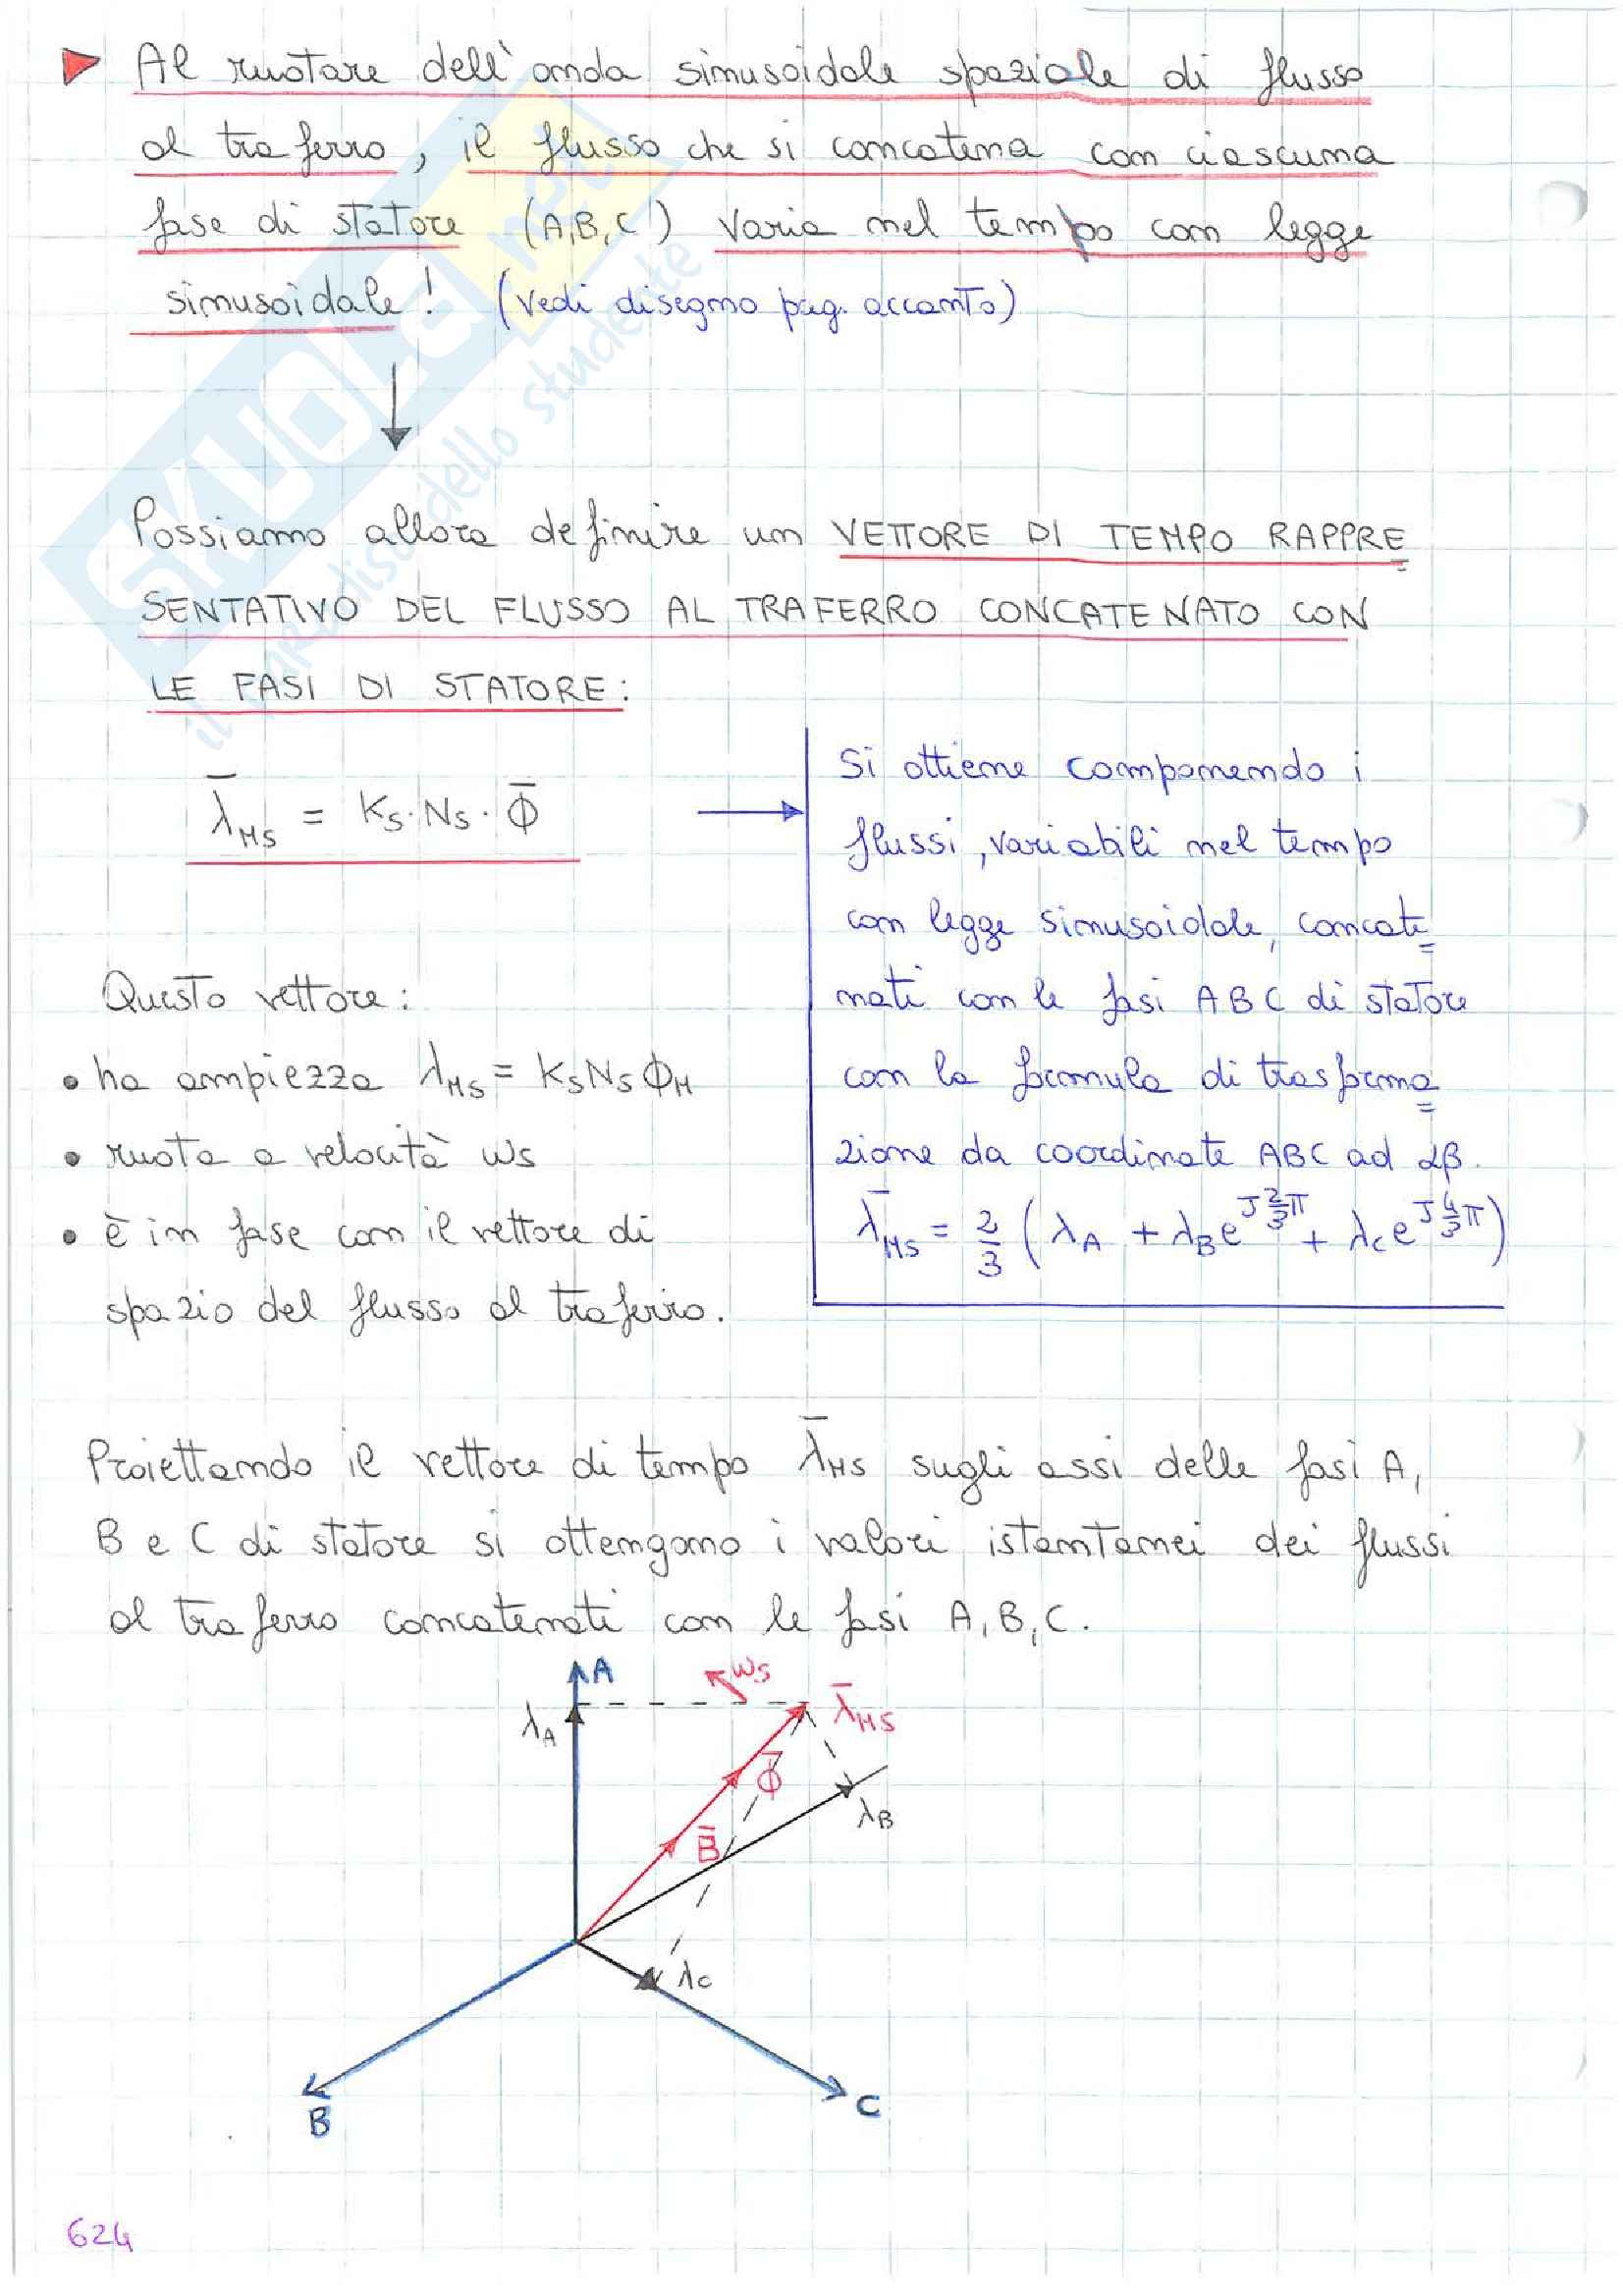 Al ruotare dell'onda sinusoidale spaziale di flusso
al traferro, il flusso che si concatena con ciascuna
fase di statore (A,B,C) varia nel tempo con legge
sinusoidale! (vedi disegno pag. accanto)
Possiamo allora definire un VETTORE DI TEMPO RAPPRE
SENTATIVO DEL FLUSSO AL TRAFERRO CONCATENATO CON
LE FASI DI STATORE:
λ̄MS = KS·NS·Φ̄
Si ottiene componendo i
flussi, variabili nel tempo
con legge sinusoidale, concate
nati con le fasi ABC di statore
con la formula di trasforma
zione da coordinate ABC ad αβ.
λ̄MS = 2/3 (λA + λB e^J2/3π + λC e^J4/3π)
Questo vettore:
• ha ampiezza λMS = KSNSΦM
• ruota a velocità ωs
• è in fase con il vettore di
spazio del flusso al traferro.
Proiettando il vettore di tempo λ̄MS sugli assi delle fasi A,
B e C di statore si ottengono i valori istantanei dei flussi
al traferro concatenati con le fasi A,B,C.
A
ωs
λA
λ̄MS
Φ̄
λB
B̄
λC
B
C
624
SKUOLA.net
il paradiso dello studente